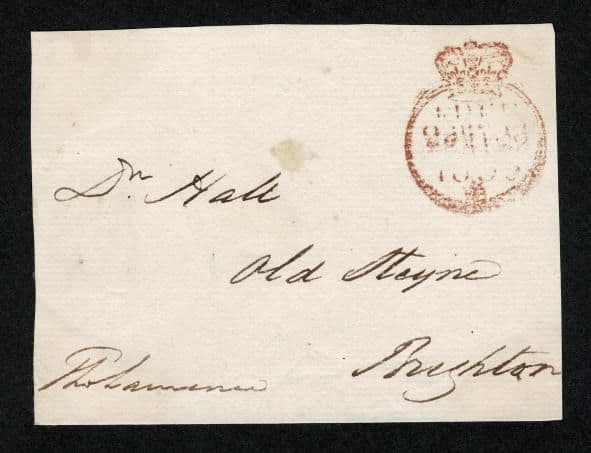 Dr. Hall
Old Steyne
Brighton
Tho Lawrence